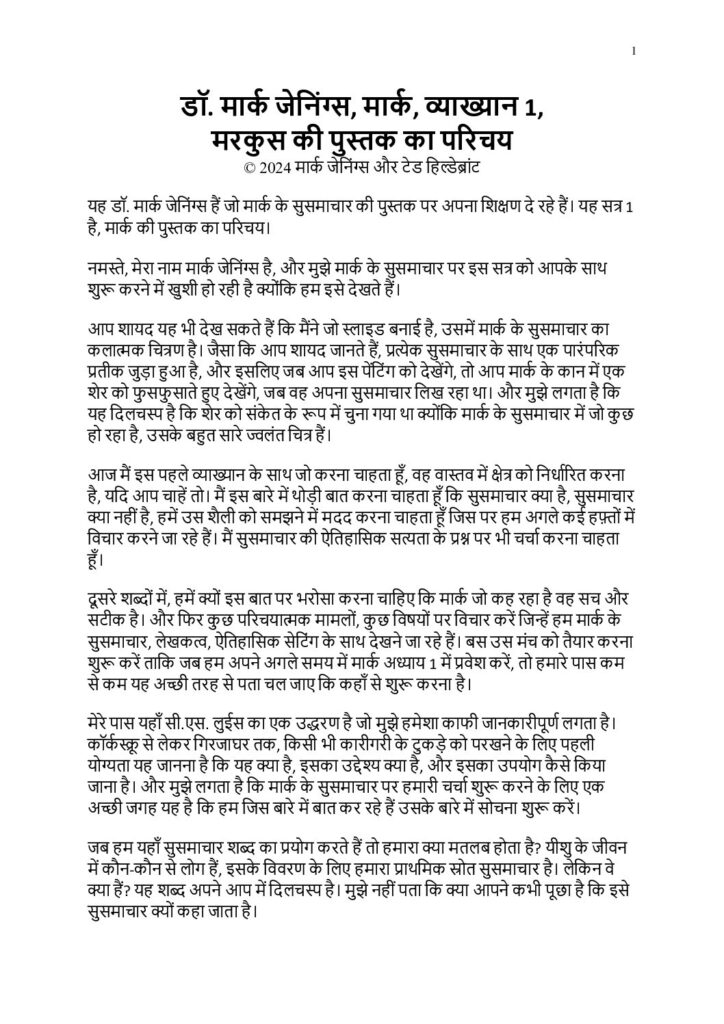 1
डॉ. मार्क जेनिंग्स, मार्क, व्याख्यान 1,
मरकुस की पुस्तक का परिचय
© 2024 मार्क जेनिंग्स और टेड हिल्डेब्रांट
यह डॉ. मार्क जेनिंग्स हैं जो मार्क के सुसमाचार की पुस्तक पर अपना शिक्षण दे रहे हैं। यह सत्र 1
है, मार्क की पुस्तक का परिचय।
नमस्ते, मेरा नाम मार्क जेनिंग्स है, और मुझे मार्क के सुसमाचार पर इस सत्र को आपके साथ
शुरू करने में खुशी हो रही है क्योंकि हम इसे देखते हैं।
आप शायद यह भी देख सकते हैं कि मैंने जो स्लाइड बनाई है, उसमें मार्क के सुसमाचार का
कलात्मक चित्रण है। जैसा कि आप शायद जानते हैं, प्रत्येक सुसमाचार के साथ एक पारंपरिक
प्रतीक जुड़ा हुआ है, और इसलिए जब आप इस पेंटिंग को देखेंगे, तो आप मार्क के कान में एक
शेर को फुसफुसाते हुए देखेंगे, जब वह अपना सुसमाचार लिख रहा था। और मुझे लगता है कि
यह दिलचस्प है कि शेर को संकेत के रूप में चुना गया था क्योंकि मार्क के सुसमाचार में जो कुछ
हो रहा है, उसके बहुत सारे ज्वलंत चित्र हैं।
आज मैं इस पहले व्याख्यान के साथ जो करना चाहता हूँ, वह वास्तव में क्षेत्र को निर्धारित करना
है, यदि आप चाहें तो। मैं इस बारे में थोड़ी बात करना चाहता हूँ कि सुसमाचार क्या है, सुसमाचार
क्या नहीं है, हमें उस शैली को समझने में मदद करना चाहता हूँ जिस पर हम अगले कई हफ़्तों में
विचार करने जा रहे हैं। मैं सुसमाचार की ऐतिहासिक सत्यता के प्रश्न पर भी चर्चा करना चाहता
हूँ।
दूसरे शब्दों में, हमें क्यों इस बात पर भरोसा करना चाहिए कि मार्क जो कह रहा है वह सच और
सटीक है। और फिर कुछ परिचयात्मक मामलों, कुछ विषयों पर विचार करें जिन्हें हम मार्क के
सुसमाचार, लेखकत्व, ऐतिहासिक सेटिंग के साथ देखने जा रहे हैं। बस उस मंच को तैयार करना
शुरू करें ताकि जब हम अपने अगले समय में मार्क अध्याय 1 में प्रवेश करें, तो हमारे पास कम
से कम यह अच्छी तरह से पता चल जाए कि कहाँ से शुरू करना है।
मेरे पास यहाँ सी.एस. लुईस का एक उद्धरण है जो मुझे हमेशा काफी जानकारीपूर्ण लगता है।
कॉर्कस्क्रू से लेकर गिरजाघर तक, किसी भी कारीगरी के टुकड़े को परखने के लिए पहली
योग्यता यह जानना है कि यह क्या है, इसका उद्देश्य क्या है, और इसका उपयोग कैसे किया
जाना है। और मुझे लगता है कि मार्क के सुसमाचार पर हमारी चर्चा शुरू करने के लिए एक
अच्छी जगह यह है कि हम जिस बारे में बात कर रहे हैं उसके बारे में सोचना शुरू करें।
जब हम यहाँ सुसमाचार शब्द का प्रयोग करते हैं तो हमारा क्या मतलब होता है? यीशु के जीवन
में कौन-कौन से लोग हैं, इसके विवरण के लिए हमारा प्राथमिक स्रोत सुसमाचार है। लेकिन वे
क्या हैं? यह शब्द अपने आप में दिलचस्प है। मुझे नहीं पता कि क्या आपने कभी पूछा है कि इसे
सुसमाचार क्यों कहा जाता है।